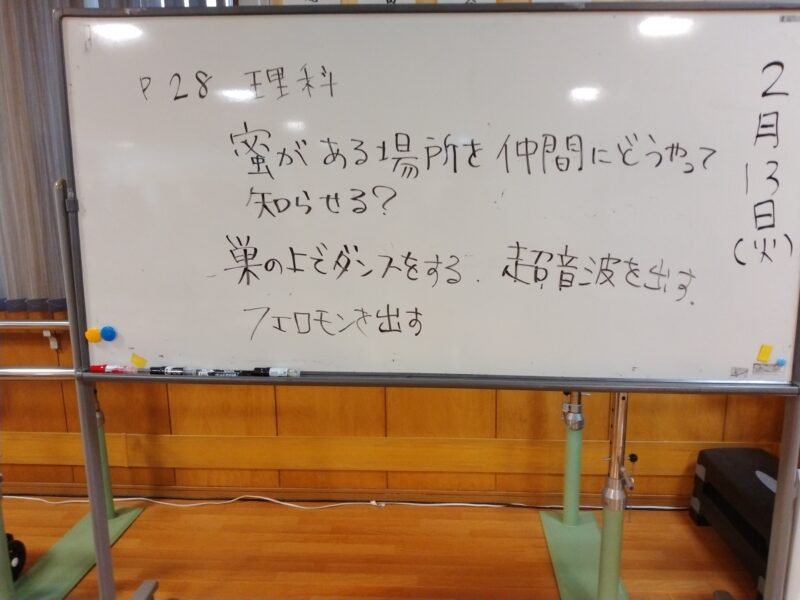 P28 理科
蜜がある場所を仲間にどうやって
知らせる?
巣の上でダンスをする. 超音波を出す.
フェロモンを出す
2月13日(火)